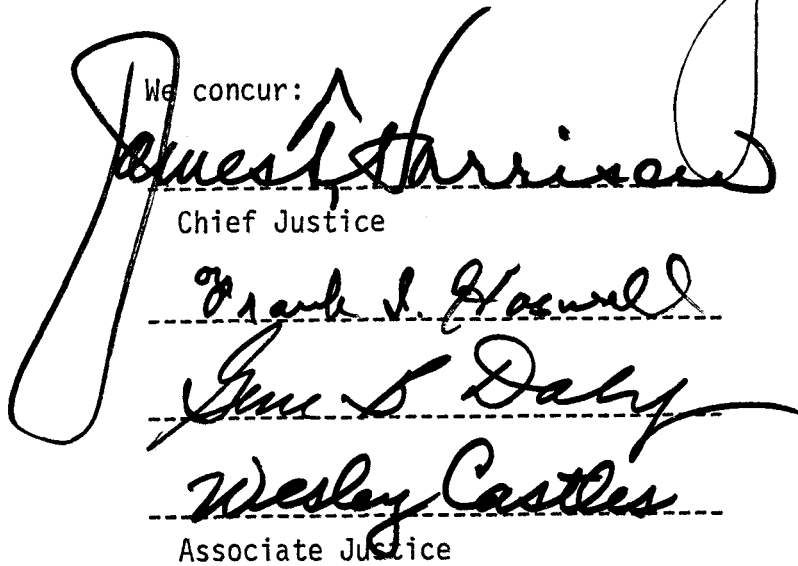 We concur:
James T. Harrison
Chief Justice
Frank I. Haswell
Gene B Daly
Wesley Castles
Associate Justice